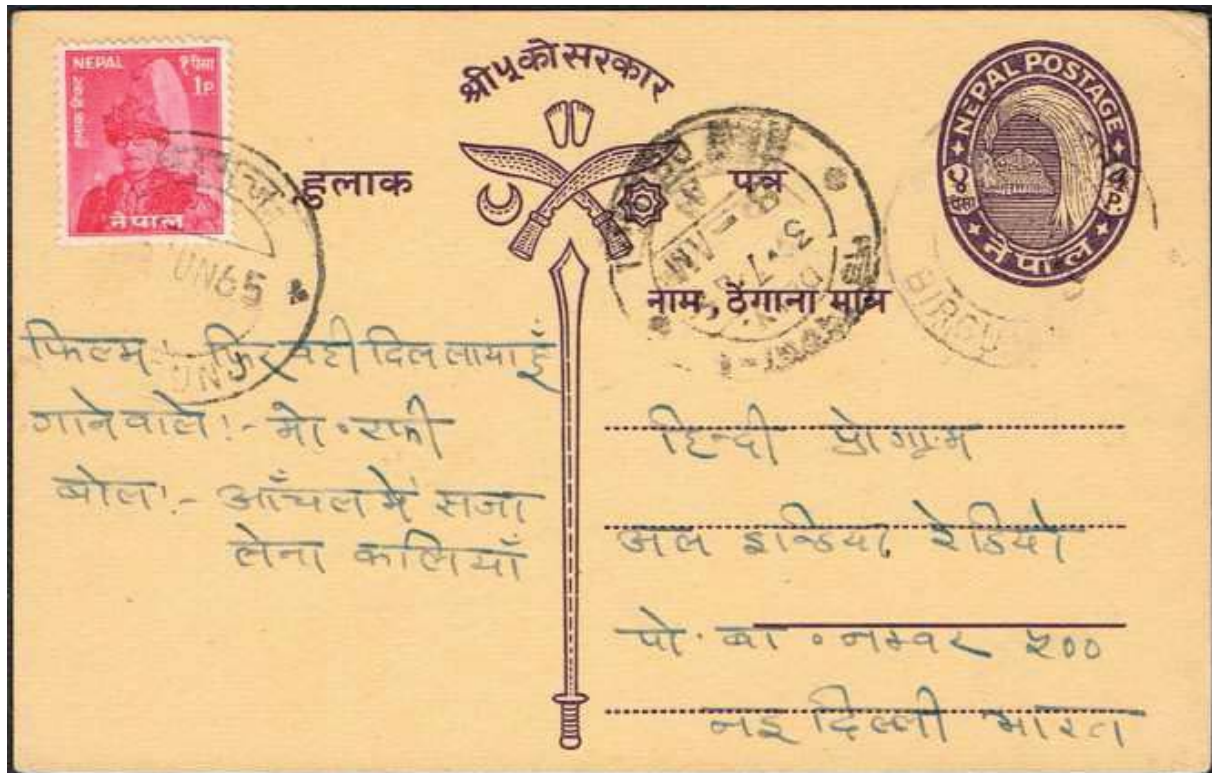 NEPAL १ पैसा
1P
नेपाल
श्री ५ को सरकार
हुलाक पत्र
नाम, ठेगाना मात्र
NEPAL POSTAGE
४ पैसा 4 P.
नेपाल
UN65
BIRGU
फिल्म :- फिर वही दिल लाया हूँ
गानेवाले :- मो॰ रफी
बोल :- आँचल में सजा
लेना कलियाँ
हिन्दी प्रोग्राम
अल इन्डिया रेडियो
पो. बा॰ नम्बर ५००
नइ दिल्ली भारत